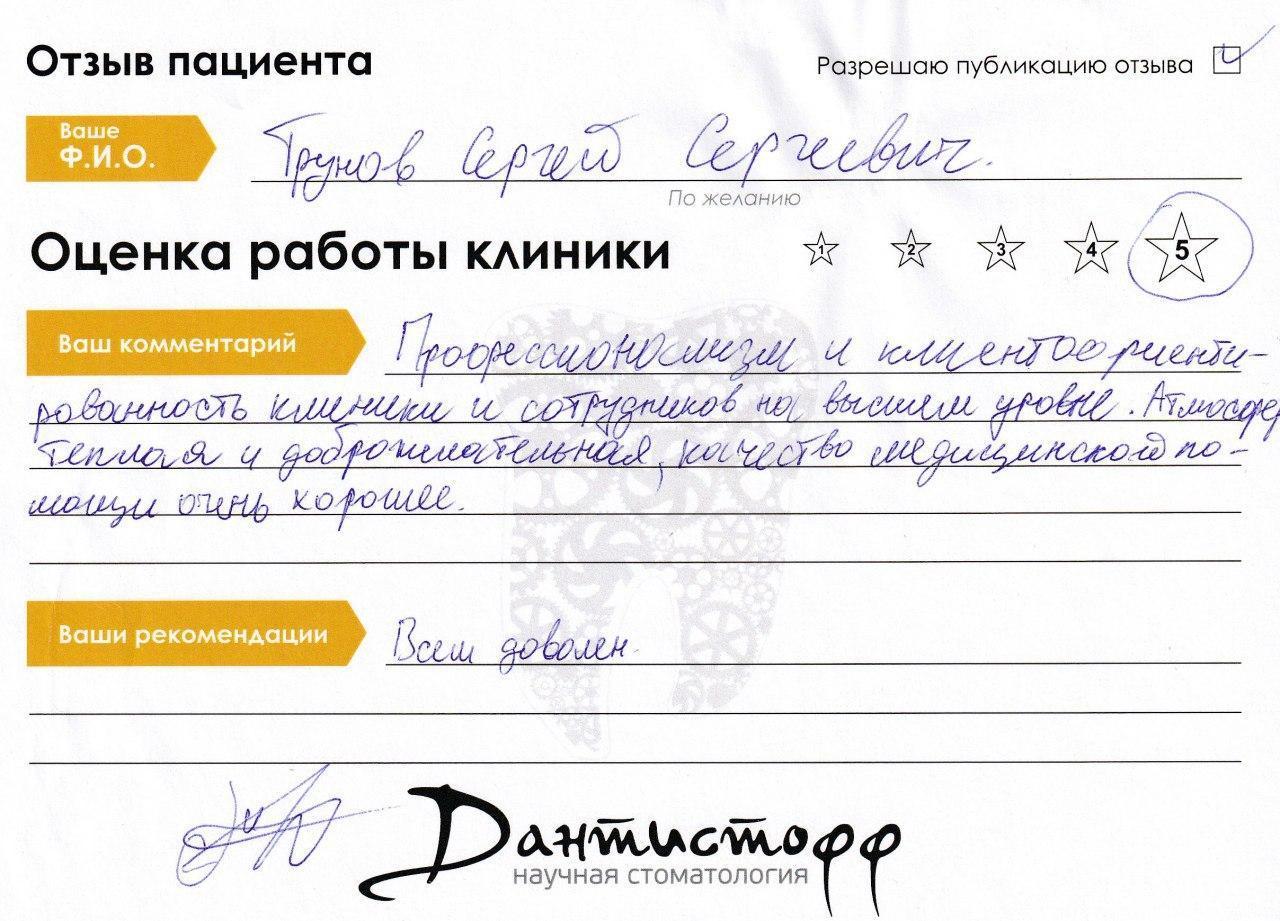 Отзыв пациента
Разрешаю публикацию отзыва
Ваше
Ф.И.О.
Трунов Сергей Сергеевич.
По желанию
Оценка работы клиники
1 2 3 4 5
Ваш комментарий
Профессионализм и клиентоориенти-
рованность клиники и сотрудников на высшем уровне. Атмосфера
теплая и доброжелательная, качество медицинской по-
мощи очень хорошее.
Ваши рекомендации
Всем доволен.
Дантистофф
научная стоматология